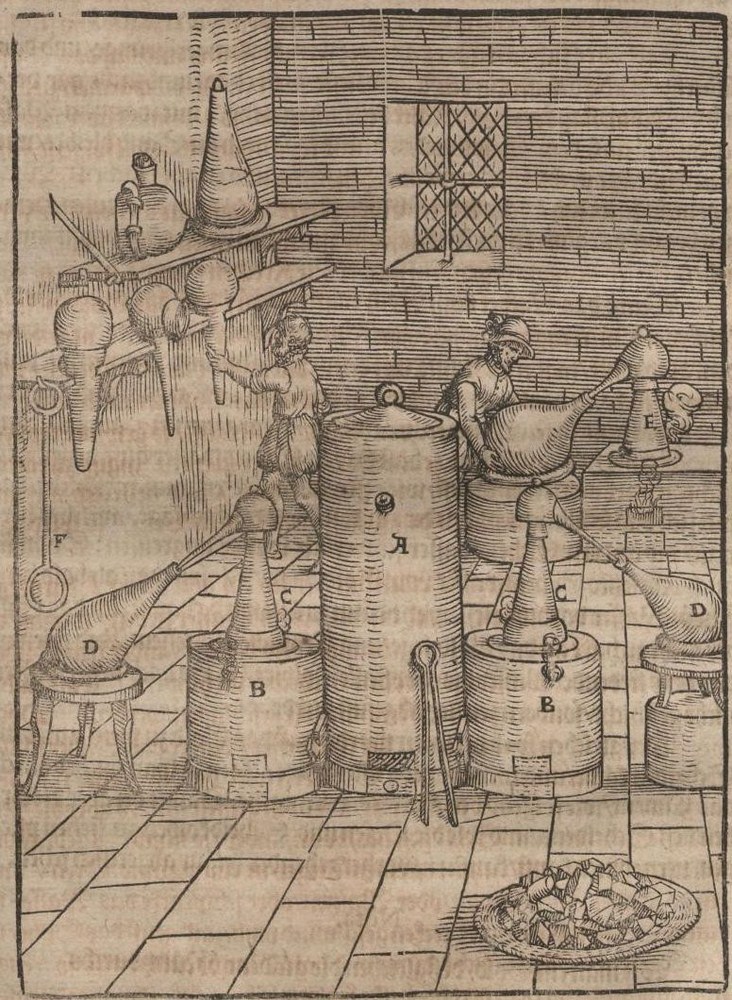 E
A
F
C
C
D
D
B
B